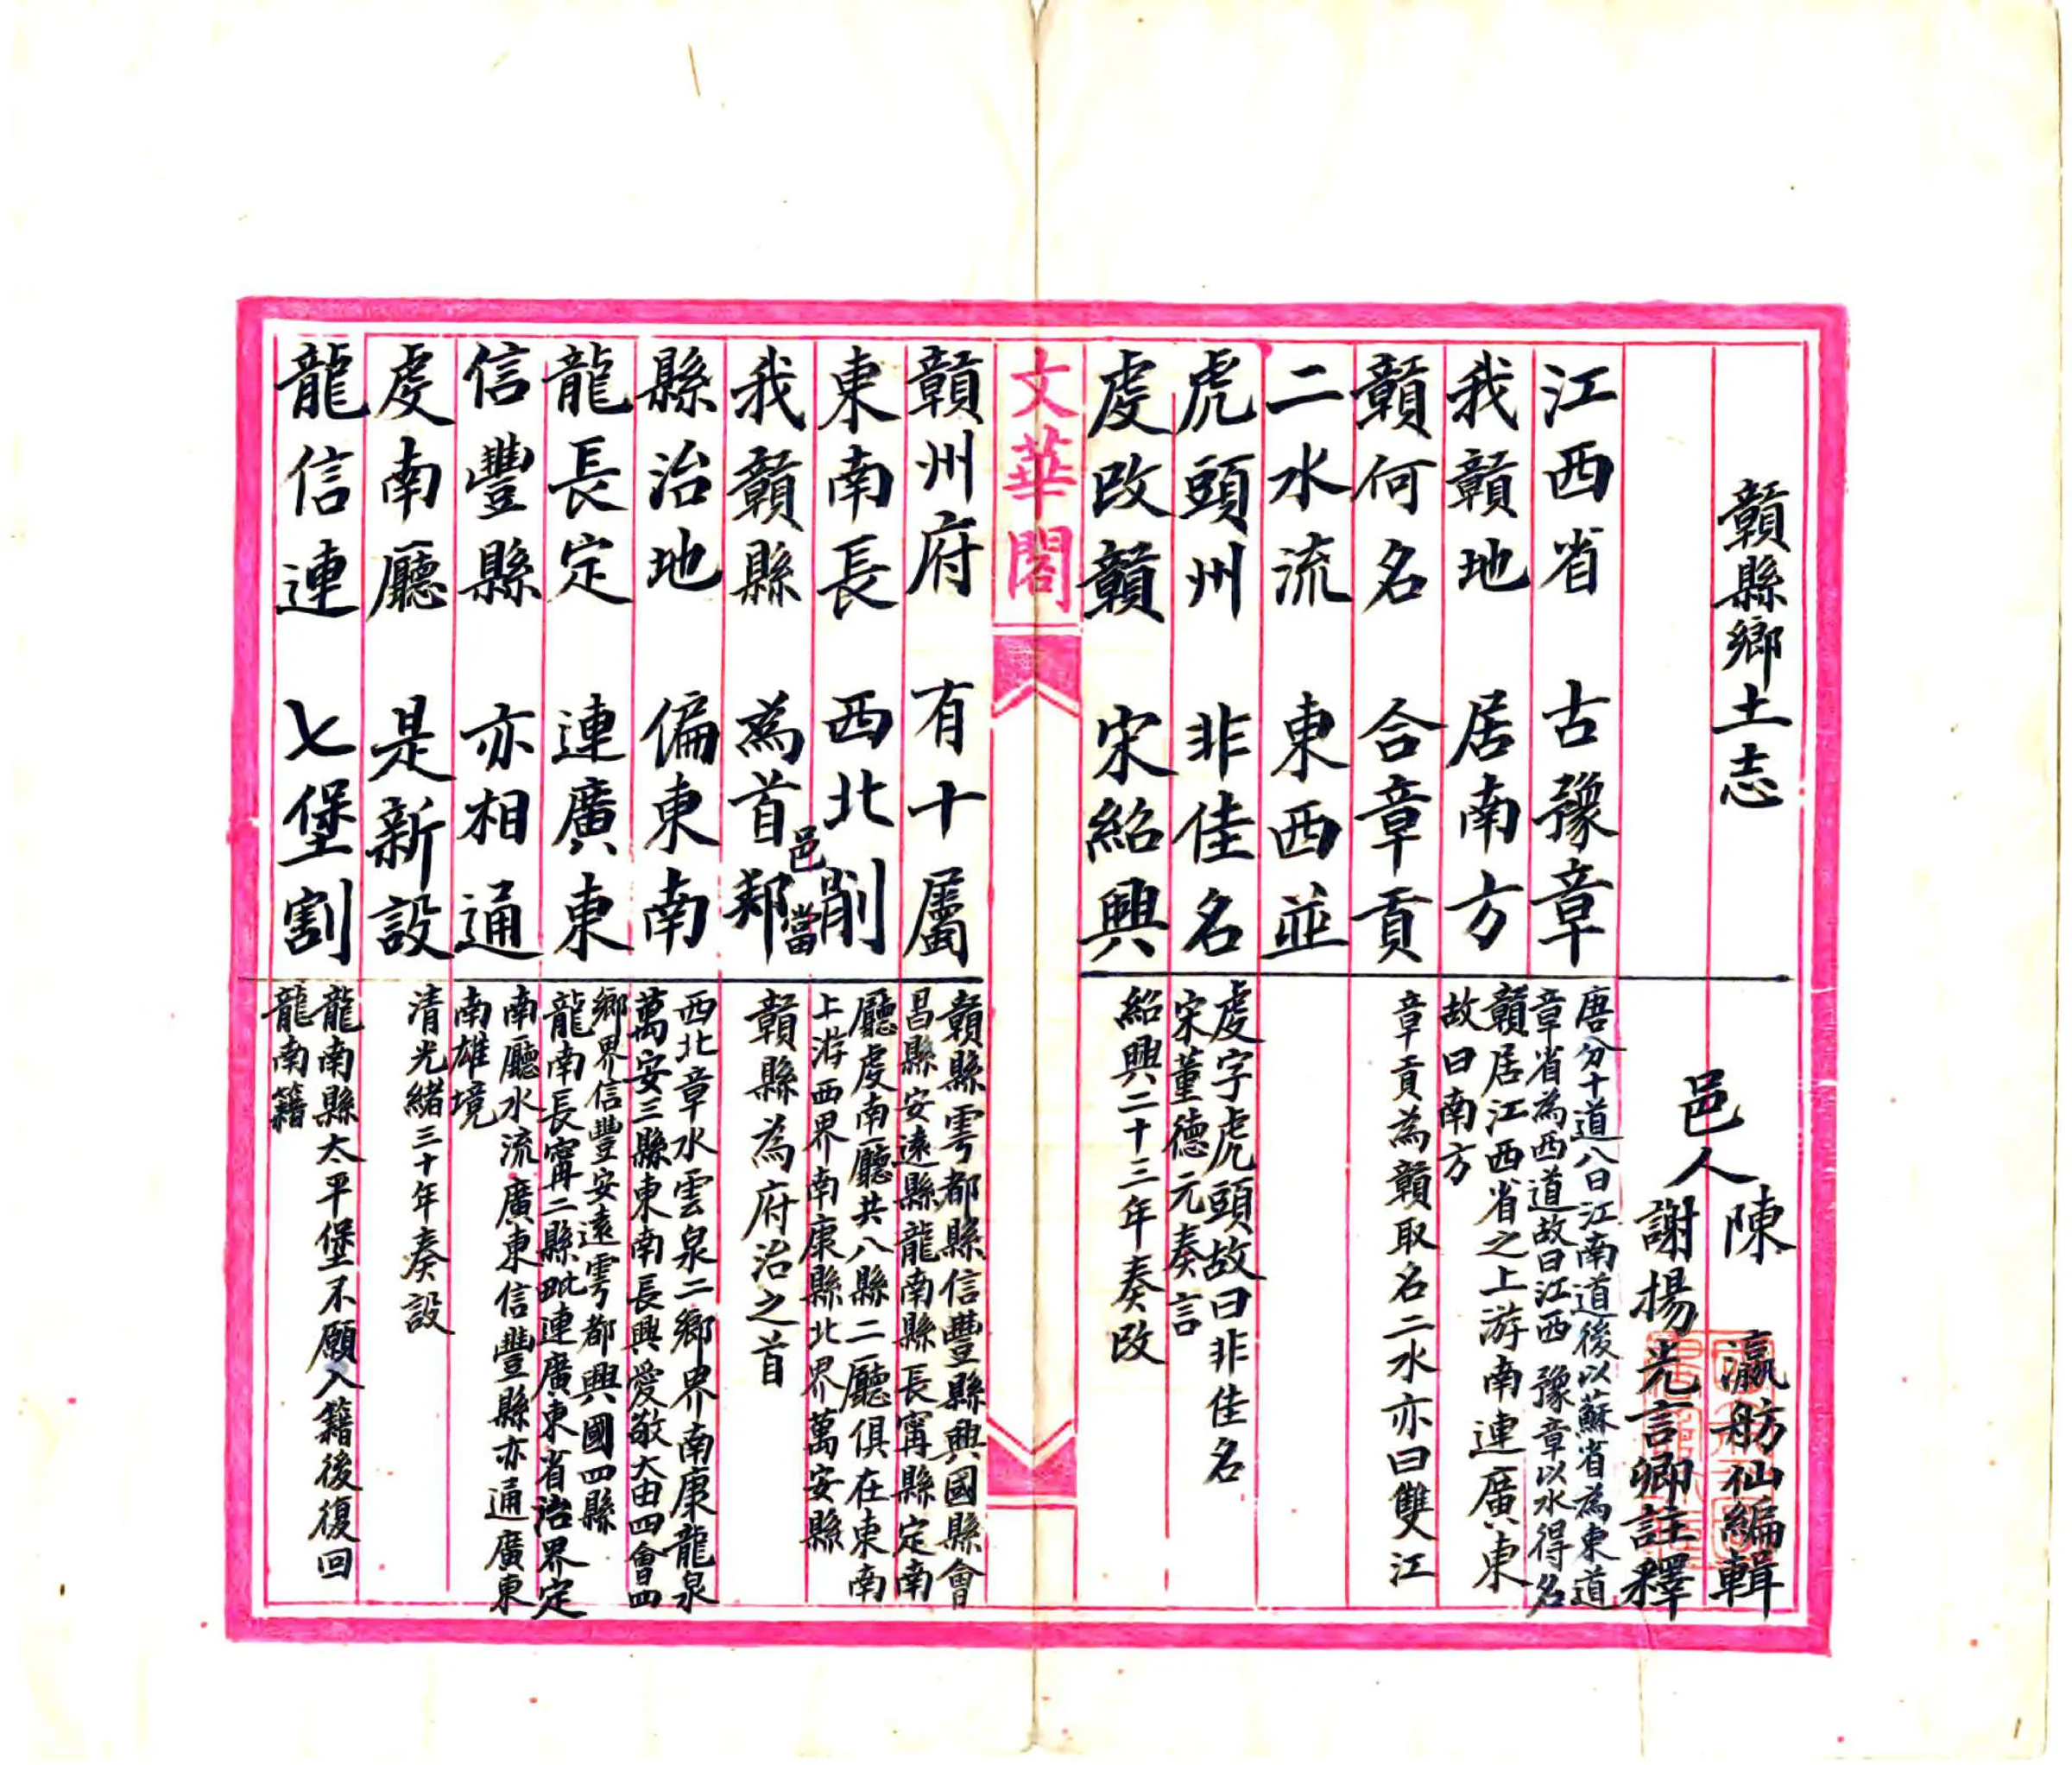 贛縣鄉土志
邑人
陳瀛舫仙編輯
謝揚光言卿註釋
江西省 古豫章
唐分十道八曰江南道後以蘇省為東道
章省為西道故曰江西 豫章以水得名
我贛地 居南方
贛居江西省之上游南連廣東
故曰南方
贛何名 合章貢
章貢為贛取名二水亦曰雙江
二水流 東西並
虎頭州 非佳名
虔字虎頭故曰非佳名
宋董德元奏言
虔改贛 宋紹興
紹興二十三年奏改
文華閣
贛州府 有十屬
贛縣雩都縣信豐縣興國縣會
昌縣安遠縣龍南縣長甯縣定南
廳虔南廳共八縣二廳俱在東南
東南長 西北削
上游西界南康縣北界萬安縣
我贛縣 為首邦
邑當
贛縣為府治之首
縣治地 偏東南
西北章水雲泉二鄉界南康龍泉
萬安三縣東南長興愛敬大由四會四
鄉界信豐安遠雩都興國四縣
龍長定 連廣東
龍南長甯二縣毗連廣東省治界定
南廳水流廣東信豐縣亦通廣東
信豐縣 亦相通
南雄境
虔南廳 是新設
清光緒三十年奏設
龍信連 七堡割
龍南縣太平堡不願入籍後復回
龍南籍